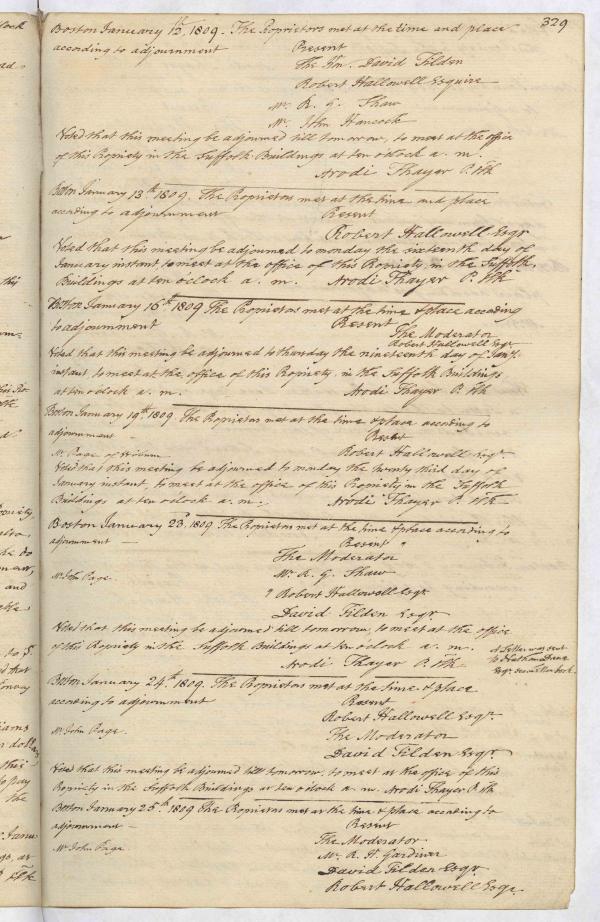 329
Boston January 12th, 1809. The Proprietors met at the time and place
according to adjournment
Present
The Hon. David Tilden
Robert Hallowell Esquire
Mr. R. G. Shaw
Mr. John Hancock
Voted that this meeting be adjourned till tomorrow, to meet at the office
of this Propriety in the Suffolk Buildings at ten oclock a. m.
Arodi Thayer P. Clk
Boston January 13th 1809. The Proprietors met at the time and place
according to adjournment
Present
Robert Hallowell Esqr
Voted that this meeting be adjourned to monday the sixteenth day of
January instant, to meet at the office of this Propriety, in the Suffolk
Buildings at ten oclock a. m. Arodi Thayer P. Clk
Boston January 16th 1809 The Proprietors met at the time & place according
to adjournment
Present
The Moderator
Robert Hallowell Esqr
Voted that this meeting be adjourned to thursday the nineteenth day of Jany.
instant, to meet at the office of this Propriety, in the Suffolk Buildings
at ten oclock a. m. Arodi Thayer P. Clk
Boston January 19th 1809 The Proprietors met at the time & place according to
adjournment
Present
Mr. Page of
Robert Hallowell Esqr.
Voted that this meeting be adjourned to monday the twenty third day of
January instant, to meet at the office of this Propriety in the Suffolk
Buildings at ten oclock a. m. Arodi Thayer P. Clk
Boston January 23d, 1809. The Proprietors met at the time & place according to
adjournment —
Present
The Moderator
Mr John Page
Mr. R. G. Shaw
Robert Hallowell Esqr
David Tilden Esqr.
Voted that this meeting be adjourned till tomorrow, to meet at the office
of this Propriety in the Suffolk Buildings at ten oclock a. m.
Arodi Thayer P. Clk
A Letter was sent
to Nathan Dane
Esqr. see letter book.
Boston January 24th. 1809. The Proprietors met at the time & place
according to adjournment
Present
Robert Hallowell Esqr.
Mr. John Page.
The Moderator
David Tilden Esqr.
Voted that this meeting be adjourned till tomorrow, to meet at the office of this
Propriety in the Suffolk Buildings at ten oclock a. m. Arodi Thayer P. Clk
Boston January 25th 1809 The Proprietors met at the time & place according to
adjournment —
Present
The Moderator
Mr John Page
Mr. R. H. Gardiner
David Tilden Esqr.
Robert Hallowell Esqr.